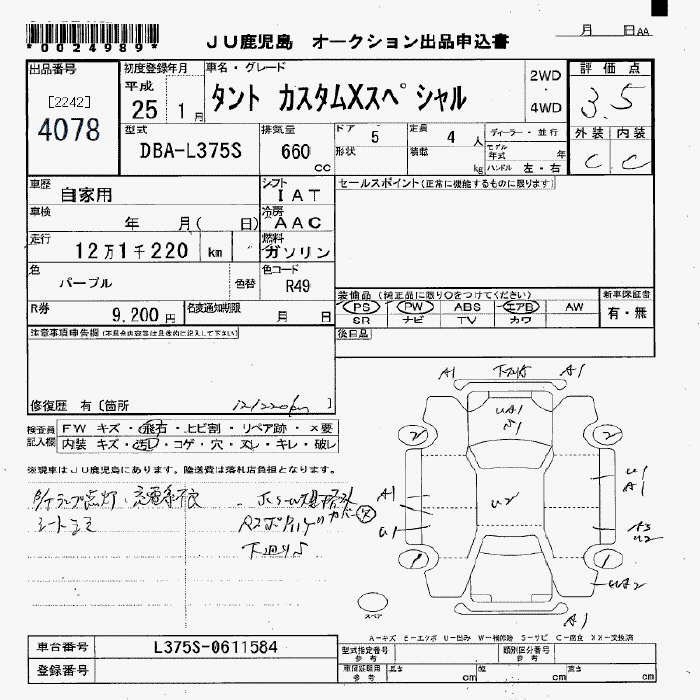 *0024989*
JU鹿児島 オークション出品申込書
月 日 AA
出品番号
[2242]
4078
初度登録年月
平成
25 1 月
車名・グレード
タント カスタムXスペシャル
2WD
・
4WD
評価点
3.5
外装 内装
C C
型式
DBA-L375S
排気量
660
cc
ドア 5
形状
定員 4 人
積載 kg
ディーラー・並行
モデル年式 年
ハンドル 左・右
車歴
自家用
シフト
IAT
セールスポイント(正常に機能するものに限ります)
車検
年 月( 日)
冷房
AAC
走行
12万1千220 km
燃料
ガソリン
色
パープル
色替
色コード
R49
装備品(純正品に限り○をつけてください)
PS PW ABS エアB AW
SR ナビ TV カワ
新車保証書
有・無
R券
9,200 円
名変通知期限
月 日
後日品
注意事項申告欄(不具合内容等は具体的に記入して下さい)
修復歴 有〔箇所 〕
121220km
検査員記入欄
FW キズ・飛石・ヒビ割・リペア跡・×要
内装 キズ・汚れ・コゲ・穴・スレ・キレ・破レ
※現車はJU鹿児島にあります。陸送費は落札店負担となります。
A1 A1
UA1
2 2
U2
A1
U1
U1
A1
A3
U2
1 1
UA2
A1
スペア
A-キズ E-エクボ U-凹み W-補修跡 S-サビ C-腐食 XX-交換済
車台番号
L375S-0611584
登録番号
型式指定番号
参考
類別区分番号
参考
車両記載用
参考
長さ cm
幅 cm
高さ cm